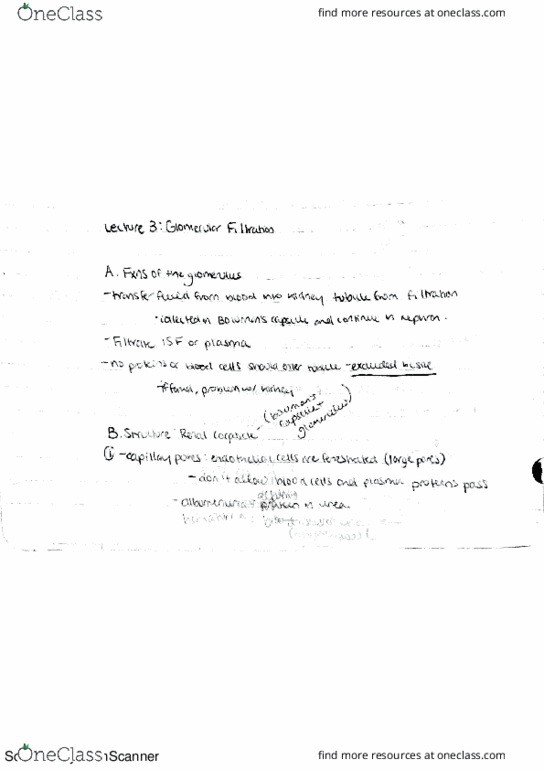 OneClass
find more resources at oneclass.com
Lecture 3: Glomerular Filtration
A. Fxns of the glomerulus
- transfer fluid from blood into kidney tubule from filtration
· collected in Bowman's capsule and continue in nephron.
- Filtrate ISF or plasma
- no proteins or blood cells should enter tubule - excluded by size
* if found, problem w/ kidney
B. Structure: Renal Corpuscle - (bowman's capsule + glomerulus)
① - capillary pores: endothelial cells are fenestrated (large pores)
- don't allow blood cells and plasma proteins pass
- albuminuria: protein in urea
OneClass
Scanner
find more resources at oneclass.com